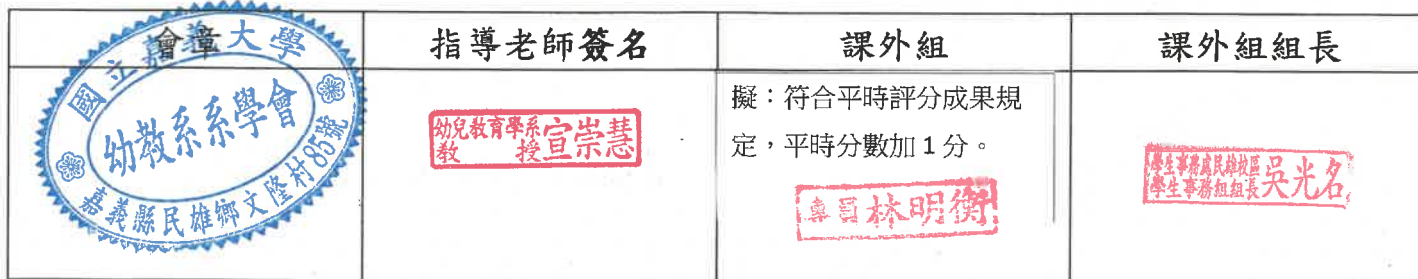 會章
指導老師簽名
課外組
課外組組長
國立嘉義大學
幼教系系學會
嘉義縣民雄鄉文隆村85號
幼兒教育學系
教授宣崇慧
擬：符合平時評分成果規
定，平時分數加1分。
專員林明衡
學生事務處民雄校區
學生事務組組長吳光名